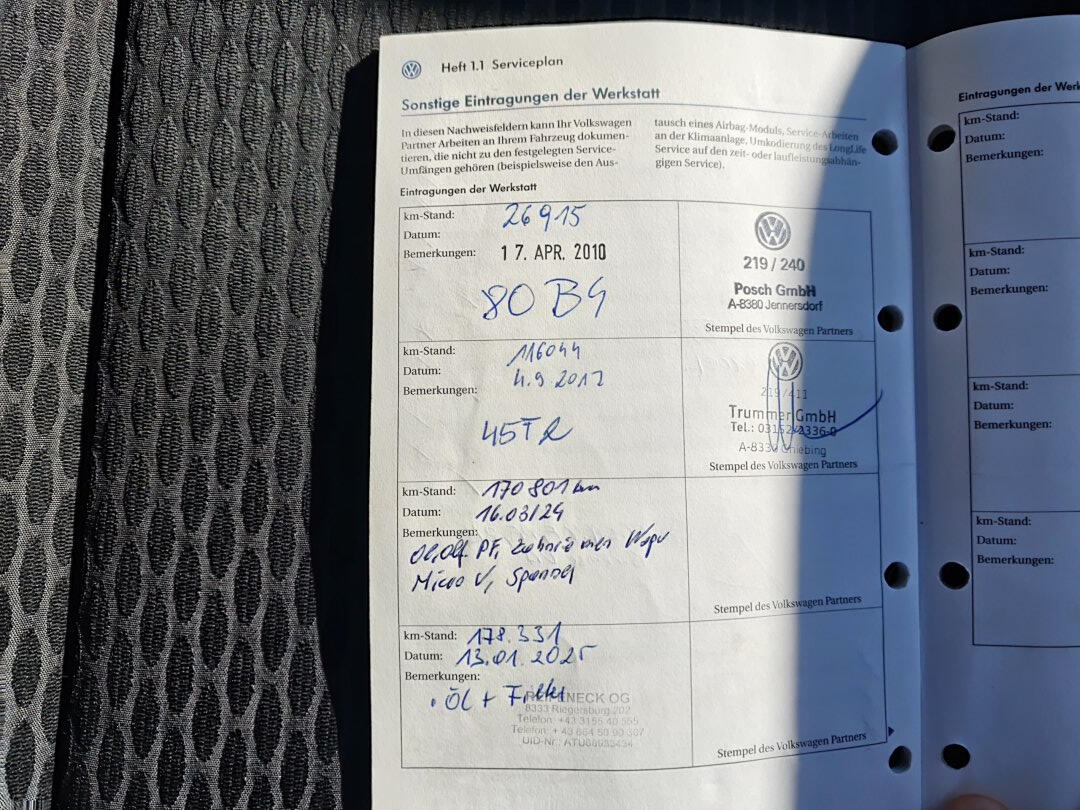 Heft 1.1 Serviceplan
Sonstige Eintragungen der Werkstatt
In diesen Nachweisfeldern kann Ihr Volkswagen
Partner Arbeiten an Ihrem Fahrzeug dokumen-
tieren, die nicht zu den festgelegten Service-
Umfängen gehören (beispielsweise den Aus-
tausch eines Airbag-Moduls, Service-Arbeiten
an der Klimaanlage, Umkodierung des LongLife
Service auf den zeit- oder laufleistungsabhän-
gigen Service).
Eintragungen der Werkstatt
km-Stand: 26915
Datum:
Bemerkungen: 17. APR. 2010
219 / 240
Posch GmbH
A-8380 Jennersdorf
Stempel des Volkswagen Partners
km-Stand: 116044
Datum: 4.9 2012
Bemerkungen:
219/411
Trummer GmbH
Tel.: 03152/2336-0
Stempel des Volkswagen Partners
km-Stand: 170801 km
Datum: 16.03/24
Bemerkungen:
PF, Zahnriemen Wapu
Micro V,
Stempel des Volkswagen Partners
km-Stand: 178.331
Datum: 13.01.2025
Bemerkungen:
• Öl + Filter
OG
8333 Riegersburg 202
Telefon:
Telefon:
UID-Nr.:
Stempel des Volkswagen Partners
Eintragungen der
km-Stand:
Datum:
Bemerkungen:
km-Stand:
Datum:
Bemerkungen:
km-Stand:
Datum:
Bemerkungen:
km-Stand:
Datum:
Bemerkungen: